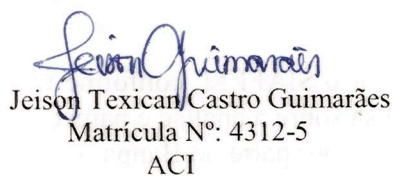 Jeison Guimarães
Jeison Texican Castro Guimarães
Matrícula Nº: 4312-5
ACI